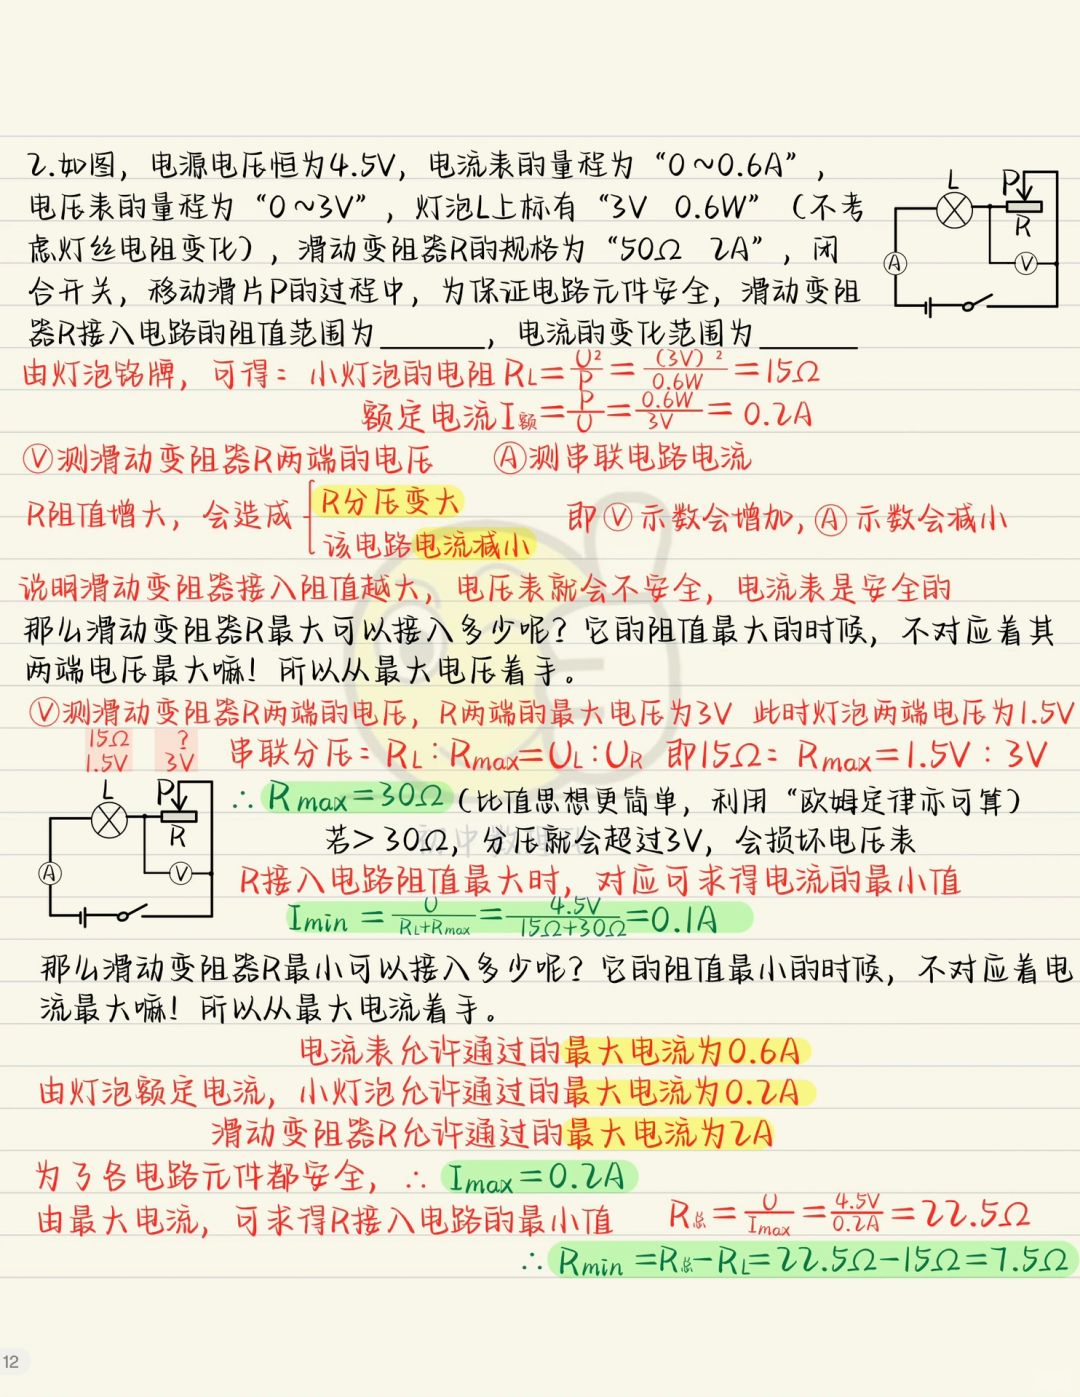 2.如图，电源电压恒为4.5V，电流表的量程为“0～0.6A”，
电压表的量程为“0～3V”，灯泡L上标有“3V 0.6W”（不考
虑灯丝电阻变化），滑动变阻器R的规格为“50Ω 2A”，闭
合开关，移动滑片P的过程中，为保证电路元件安全，滑动变阻
器R接入电路的阻值范围为______，电流的变化范围为______
L P R A V
由灯泡铭牌，可得：小灯泡的电阻RL=U²/P=(3V)²/0.6W=15Ω
额定电流I额=P/U=0.6W/3V=0.2A
Ⓥ测滑动变阻器R两端的电压 Ⓐ测串联电路电流
R阻值增大，会造成 R分压变大 即Ⓥ示数会增加,Ⓐ示数会减小
该电路电流减小
说明滑动变阻器接入阻值越大，电压表就会不安全，电流表是安全的
那么滑动变阻器R最大可以接入多少呢？它的阻值最大的时候，不对应着其
两端电压最大嘛！所以从最大电压着手。
Ⓥ测滑动变阻器R两端的电压，R两端的最大电压为3V 此时灯泡两端电压为1.5V
15Ω ?
1.5V 3V
串联分压：RL:Rmax=UL:UR 即15Ω：Rmax=1.5V：3V
L P R A V
∴Rmax=30Ω（比值思想更简单，利用“欧姆定律亦可算）
若>30Ω，分压就会超过3V，会损坏电压表
初中数理化
R接入电路阻值最大时，对应可求得电流的最小值
Imin=U/(RL+Rmax)=4.5V/(15Ω+30Ω)=0.1A
那么滑动变阻器R最小可以接入多少呢？它的阻值最小的时候，不对应着电
流最大嘛！所以从最大电流着手。
电流表允许通过的最大电流为0.6A
由灯泡额定电流，小灯泡允许通过的最大电流为0.2A
滑动变阻器R允许通过的最大电流为2A
为了各电路元件都安全，∴Imax=0.2A
由最大电流，可求得R接入电路的最小值 R总=U/Imax=4.5V/0.2A=22.5Ω
∴Rmin=R总-RL=22.5Ω-15Ω=7.5Ω
12